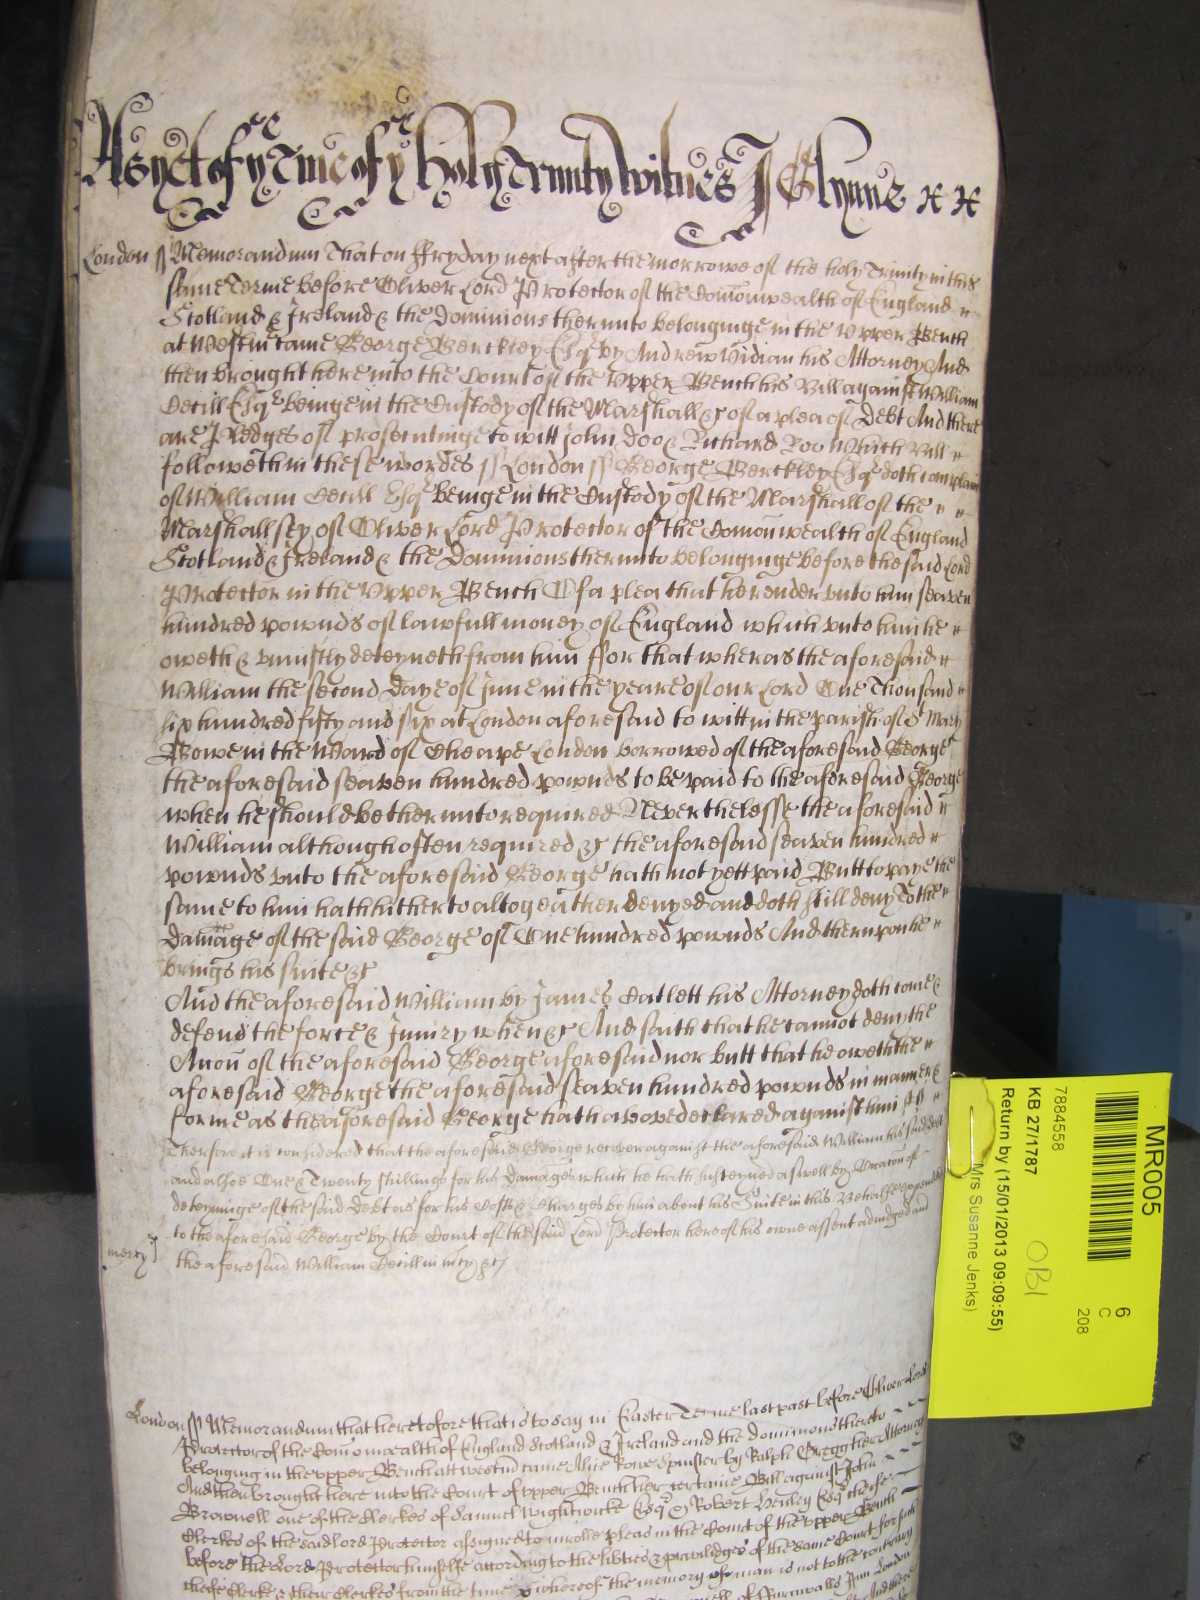 As yet of ye Tme of ye Holy Trinity Witnes J Glynne
London ss Memorandum That on ffryday next after the morrowe of the holy Trinity in this
same Terme before Oliver Lord Protector of the Comonwealth of England
Scotland & Ireland & the Dominions therunto belonginge in the Upper Bench
at Westm came George Berckley Esqr by Andrew Vidian his Attorney And
then brought here into the Court of the Upper Bench his Bill against William
Cecill Esqr beinge in the Custody of the Marshall &c of a plea of Debt And there
are Pledges of prosecutinge to witt John Doo & Richard Roo Which Bill
followeth in these wordes ss London ss George Berckley Esqr doth complain
of William Cecill Esqr beinge in the Custody of the Marshall of the
Marshallsey of Oliver Lord Protector of the Comonwealth of England
Scotland & Ireland & the Dominions therunto belonginge before the said Lord
Protector in the Upper Bench Of a plea that he render unto him seaven
hundred pownds of lawfull money of England which unto him he
oweth & uniustly deteyneth from him ffor that wheras the aforesaid
William the second Daye of June in the yeare of our Lord One Thousand
six hundred fifty and six at London aforesaid to witt in the parish of St Mary
Bowe in the Ward of Cheape London borrowed of the aforesaid George
the aforesaid seaven hundred pownds to be paid to the aforesaid George
when he should be therunto required Neverthelesse the aforesaid
William although often required &c the aforesaid seaven hundred
pownds unto the aforesaid George hath not yett paid Butt to paye the
same to him hath hitherto altogeather denyed and doth still deny To the
damage of the said George of One hundred pownds And therupon he
brings his suite &c
And the aforesaid William by James Catlett his Attorney doth come &
defend the force & Iniury when &c And saith that he cannot deny the
Accon of the aforesaid George aforesaid nor butt that he oweth the
aforesaid George the aforesaid seaven hundred pownds in manner &
forme as the aforesaid George hath above declared against him
Therefore it is considered that the aforesaid George recover against the aforesaid William his said debt
and alsoe One & Twenty shillings for his Damages which he hath susteyned aswell by Occacon of
deteyninge of the said Debt as for his Costs & Charges by him about his Suite in this Behalfe expended
to the aforesaid George by the Court of the said Lord Protector here of his owne assent adiudged and
mercy
the aforesaid William Cecill in mcy &c
London ss Memorandum that heretofore that is to say in Easter Terme last past before Oliver Lord
Protector of the Comonwealth of England Scotland & Ireland and the dominions thereto
belonging in the upper Bench att westm came Alice Rone Spinster by Ralph Gregg her Attorney
And then brought here into the Court of upper Bench her certaine Bill against John
Brownell one of the Clerkes of Samuel Wightwicke Esqr & Robert Henley Esqr cheife
Clerkes of the said lord Protector assigned to inrolle pleas in the Court of the upper Bench
before the Lord Protector himselfe according to the libties & priviledges of the same Court for such
cheife Clerkes & their Clerkes from the time whereof the memory of man is not to the contrary
MR005
6
C
208
7884558
KB 27/1787
OBI
Return by (15/01/2013 09:09:55)
Mrs Susanne Jenks)